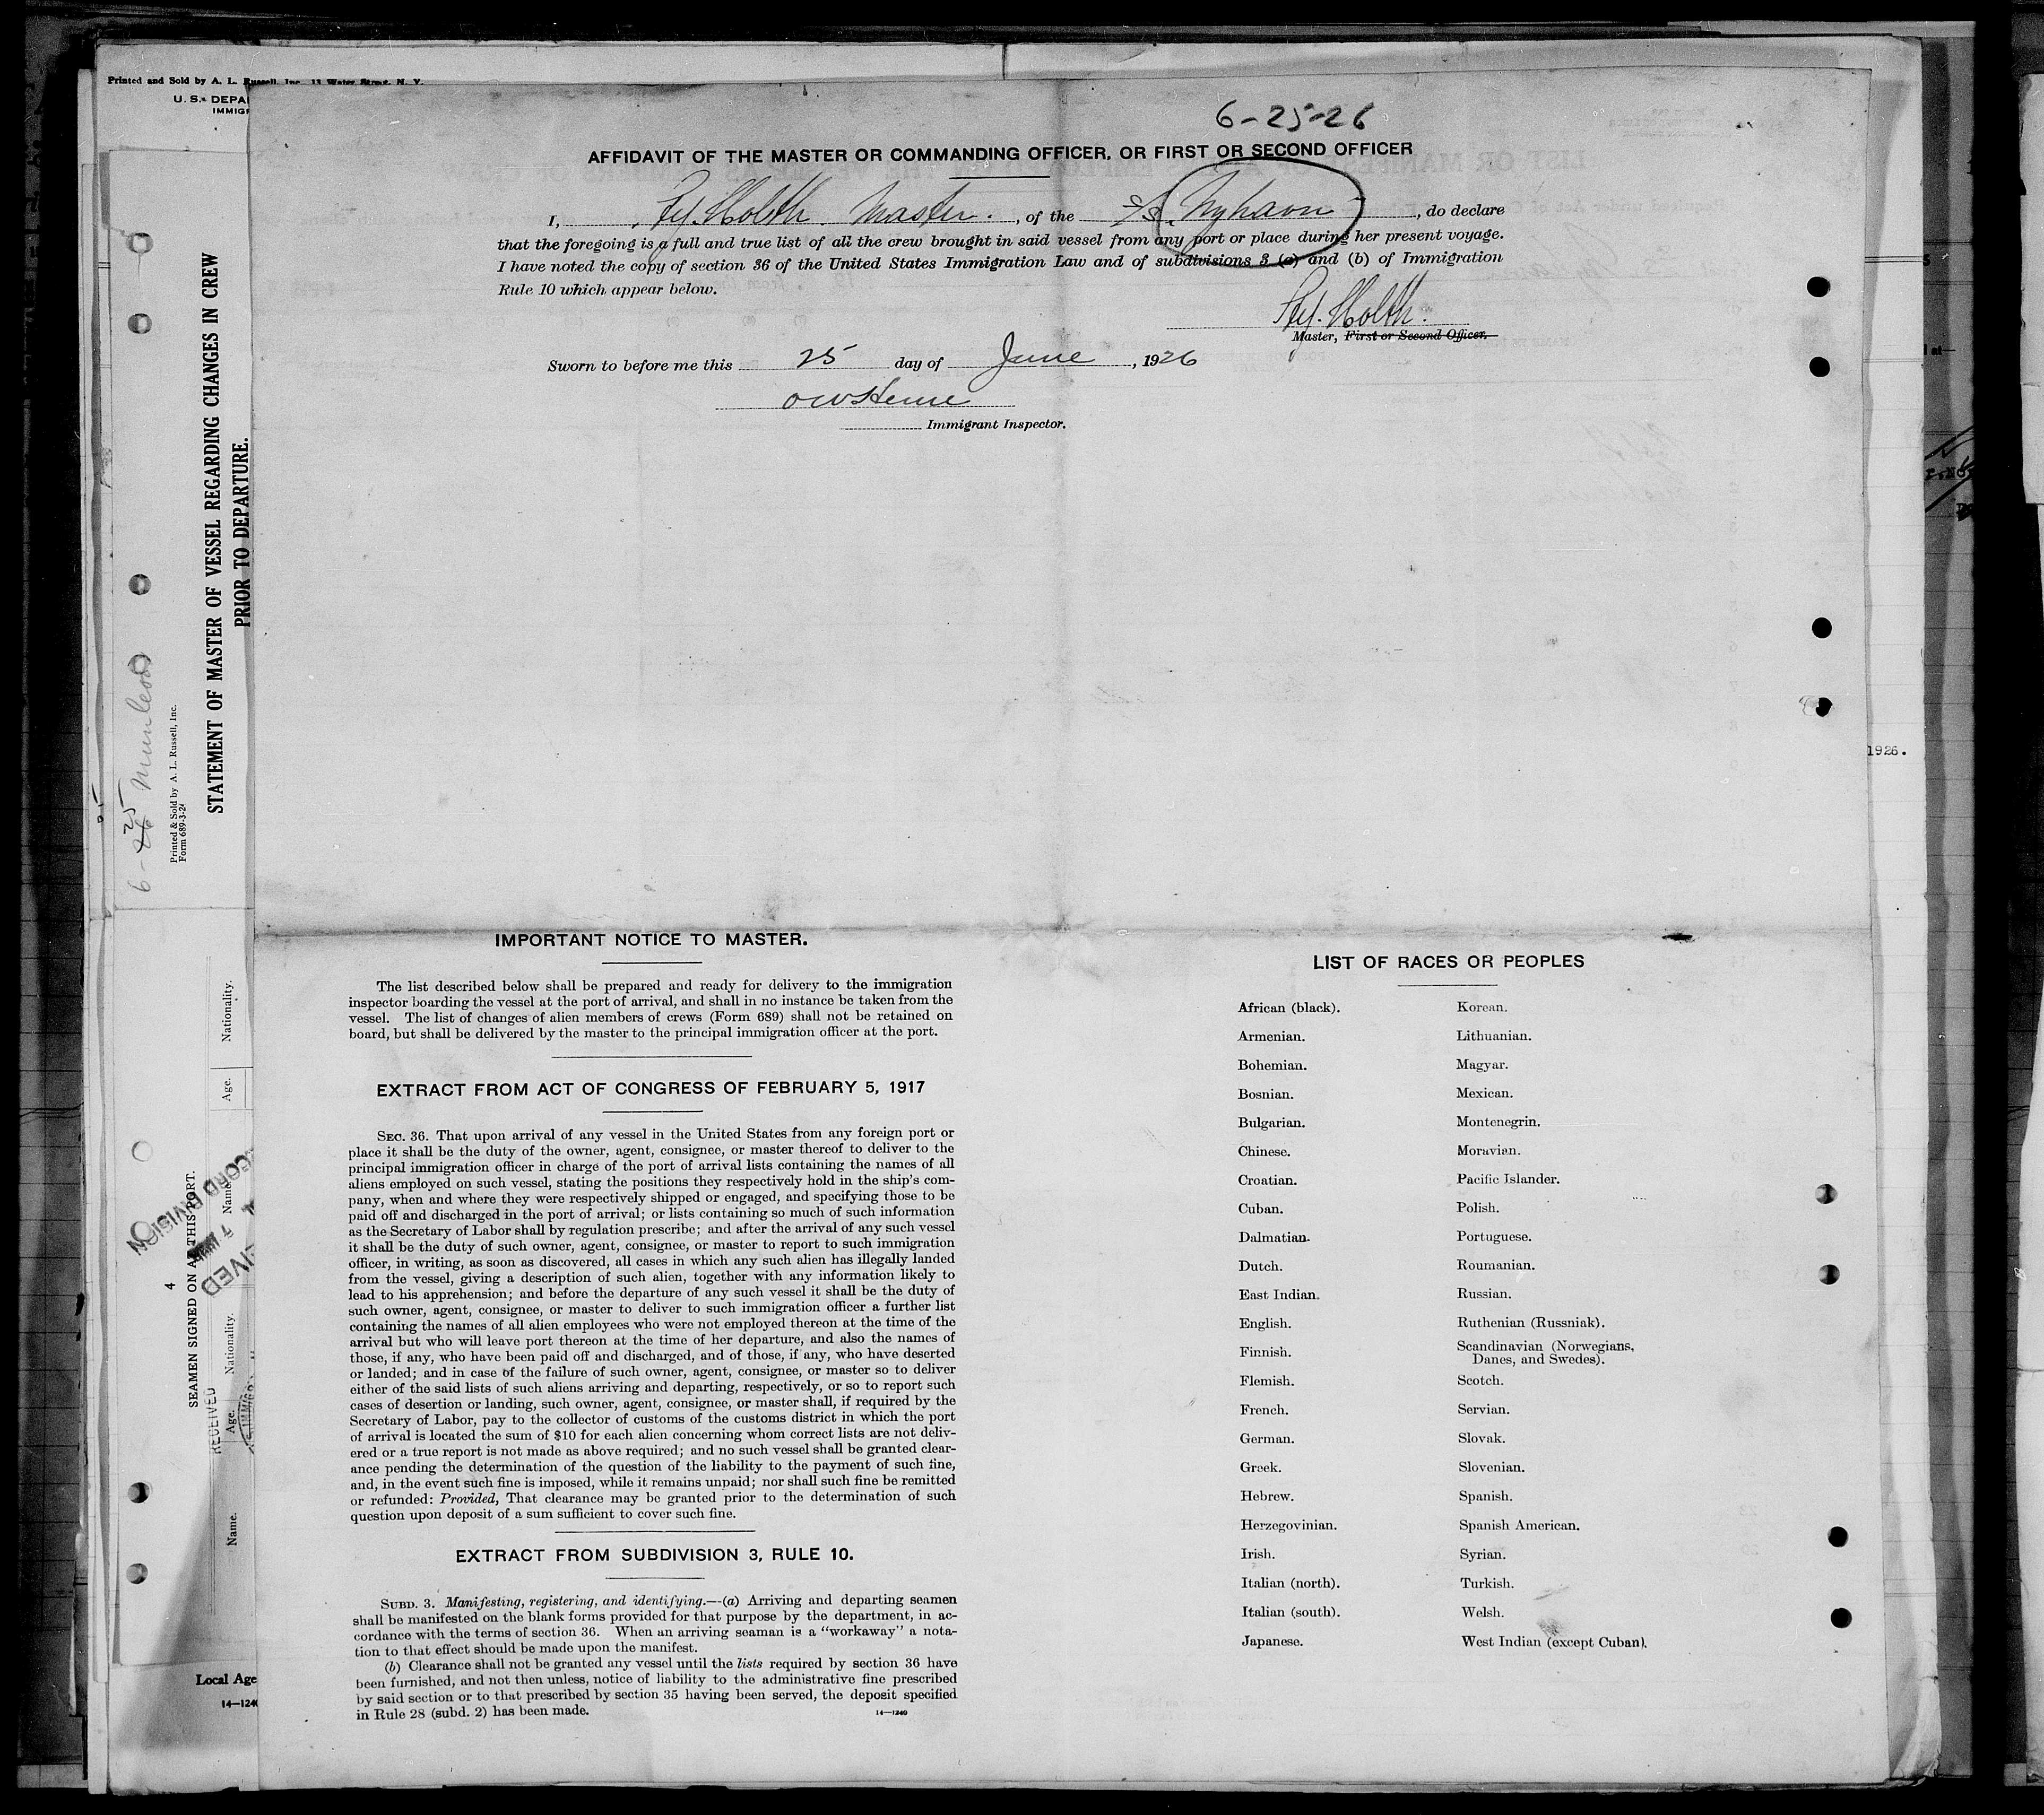 Printed and Sold by A. L. Russell, Inc. 13 Water Street, N. Y.
U. S. DEPA
IMMIG
6-25-26
AFFIDAVIT OF THE MASTER OR COMMANDING OFFICER, OR FIRST OR SECOND OFFICER
I, Holth Master. , of the SS. Nyhavn , do declare
that the foregoing is a full and true list of all the crew brought in said vessel from any port or place during her present voyage.
I have noted the copy of section 36 of the United States Immigration Law and of subdivisions 3 (a) and (b) of Immigration
Rule 10 which appear below.
Holth.
Master, First or Second Officer.
Sworn to before me this 25 day of June , 1926
Immigrant Inspector.
STATEMENT OF MASTER OF VESSEL REGARDING CHANGES IN CREW
PRIOR TO DEPARTURE.
Printed & Sold by A. L. Russell, Inc.
Form 689-3-2
6-25 Munleon
1926.
IMPORTANT NOTICE TO MASTER.
The list described below shall be prepared and ready for delivery to the immigration
inspector boarding the vessel at the port of arrival, and shall in no instance be taken from the
vessel. The list of changes of alien members of crews (Form 689) shall not be retained on
board, but shall be delivered by the master to the principal immigration officer at the port.
EXTRACT FROM ACT OF CONGRESS OF FEBRUARY 5, 1917
SEC. 36. That upon arrival of any vessel in the United States from any foreign port or
place it shall be the duty of the owner, agent, consignee, or master thereof to deliver to the
principal immigration officer in charge of the port of arrival lists containing the names of all
aliens employed on such vessel, stating the positions they respectively hold in the ship's com-
pany, when and where they were respectively shipped or engaged, and specifying those to be
paid off and discharged in the port of arrival; or lists containing so much of such information
as the Secretary of Labor shall by regulation prescribe; and after the arrival of any such vessel
it shall be the duty of such owner, agent, consignee, or master to report to such immigration
officer, in writing, as soon as discovered, all cases in which any such alien has illegally landed
from the vessel, giving a description of such alien, together with any information likely to
lead to his apprehension; and before the departure of any such vessel it shall be the duty of
such owner, agent, consignee, or master to deliver to such immigration officer a further list
containing the names of all alien employees who were not employed thereon at the time of the
arrival but who will leave port thereon at the time of her departure, and also the names of
those, if any, who have been paid off and discharged, and of those, if any, who have deserted
or landed; and in case of the failure of such owner, agent, consignee, or master so to deliver
either of the said lists of such aliens arriving and departing, respectively, or so to report such
cases of desertion or landing, such owner, agent, consignee, or master shall, if required by the
Secretary of Labor, pay to the collector of customs of the customs district in which the port
of arrival is located the sum of $10 for each alien concerning whom correct lists are not deliv-
ered or a true report is not made as above required; and no such vessel shall be granted clear-
ance pending the determination of the question of the liability to the payment of such fine,
and, in the event such fine is imposed, while it remains unpaid; nor shall such fine be remitted
or refunded: Provided, That clearance may be granted prior to the determination of such
question upon deposit of a sum sufficient to cover such fine.
EXTRACT FROM SUBDIVISION 3, RULE 10.
SUBD. 3. Manifesting, registering, and identifying.—(a) Arriving and departing seamen
shall be manifested on the blank forms provided for that purpose by the department, in ac-
cordance with the terms of section 36. When an arriving seaman is a "workaway" a nota-
tion to that effect should be made upon the manifest.
(b) Clearance shall not be granted any vessel until the lists required by section 36 have
been furnished, and not then unless, notice of liability to the administrative fine prescribed
by said section or to that prescribed by section 35 having been served, the deposit specified
in Rule 28 (subd. 2) has been made.
14—1240
LIST OF RACES OR PEOPLES
African (black).
Armenian.
Bohemian.
Bosnian.
Bulgarian.
Chinese.
Croatian.
Cuban.
Dalmatian.
Dutch.
East Indian.
English.
Finnish.
Flemish.
French.
German.
Greek.
Hebrew.
Herzegovinian.
Irish.
Italian (north).
Italian (south).
Japanese.
Korean.
Lithuanian.
Magyar.
Mexican.
Montenegrin.
Moravian.
Pacific Islander.
Polish.
Portuguese.
Roumanian.
Russian.
Ruthenian (Russniak).
Scandinavian (Norwegians,
Danes, and Swedes).
Scotch.
Servian.
Slovak.
Slovenian.
Spanish.
Spanish American.
Syrian.
Turkish.
Welsh.
West Indian (except Cuban).
4
SEAMEN SIGNED ON AT THIS PORT.
Name. Age. Nationality. Name. Age. Nationality.
RECEIVED
RECORD DIVISION
Local Age
14—124